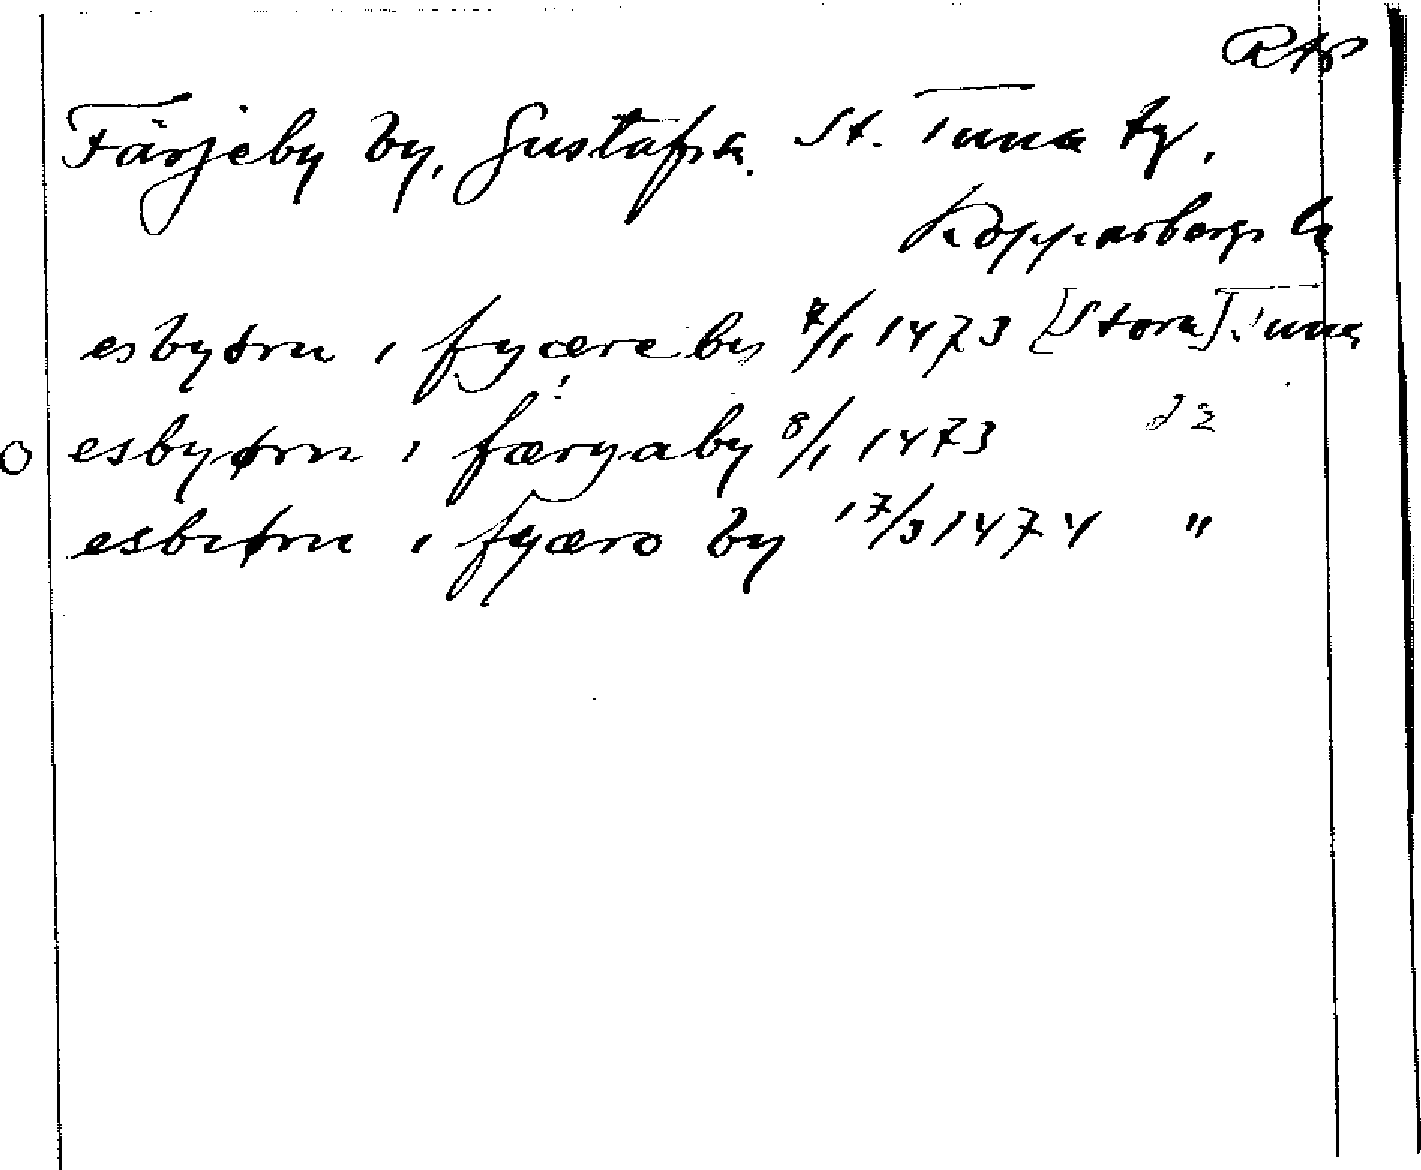 RAp
Färjeby by, Gustafs sn. St. Tuna tg,
Kopparbergs l.
esbyørn i fyæreby 7/1 1473 [Stora] Tuna
!
esbyørn i færyaby 8/1 1473 d:o
esbiørn i fyæro by 17/3 1474 "